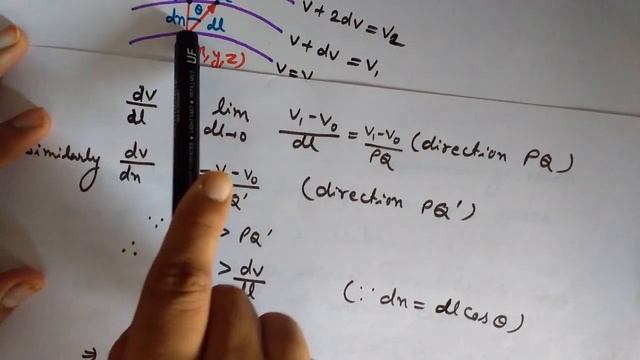 θ V + 2dv = V₂
dn dl
V + dv = V₁
,y,z)
V = V
UF
dv/dl lim dl→0 (V₁ - V₀)/dl = (V₁ - V₀)/PQ (direction PQ)
similarly dv/dn = (V₁ - V₀)/ (direction PQ')
∵ > PQ'
∴ > dv/dl (∵ dn = dl cosθ)
⇒